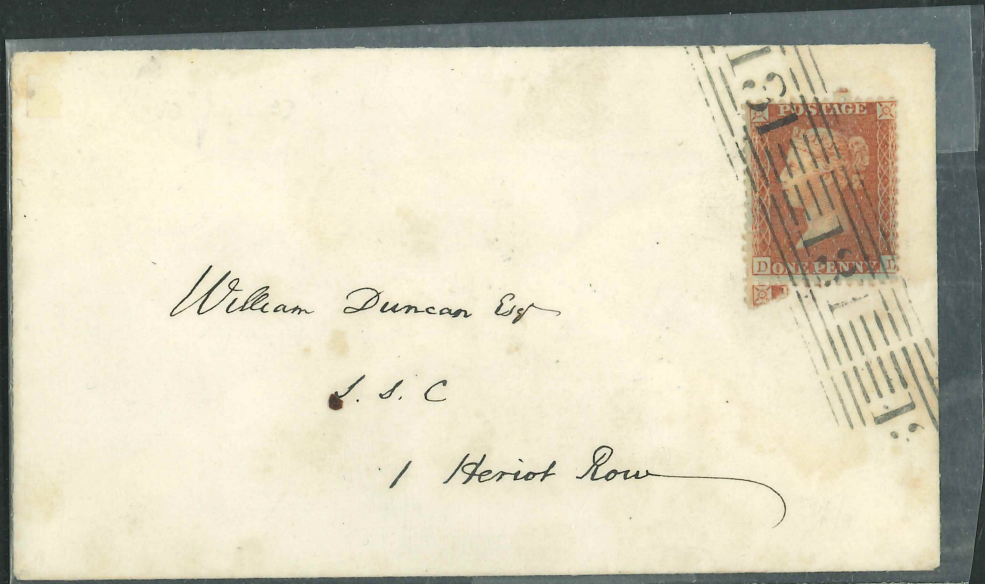 131
POSTAGE
131
D ONE PENNY L
131
William Duncan Esqr
S. S. C
1 Heriot Row